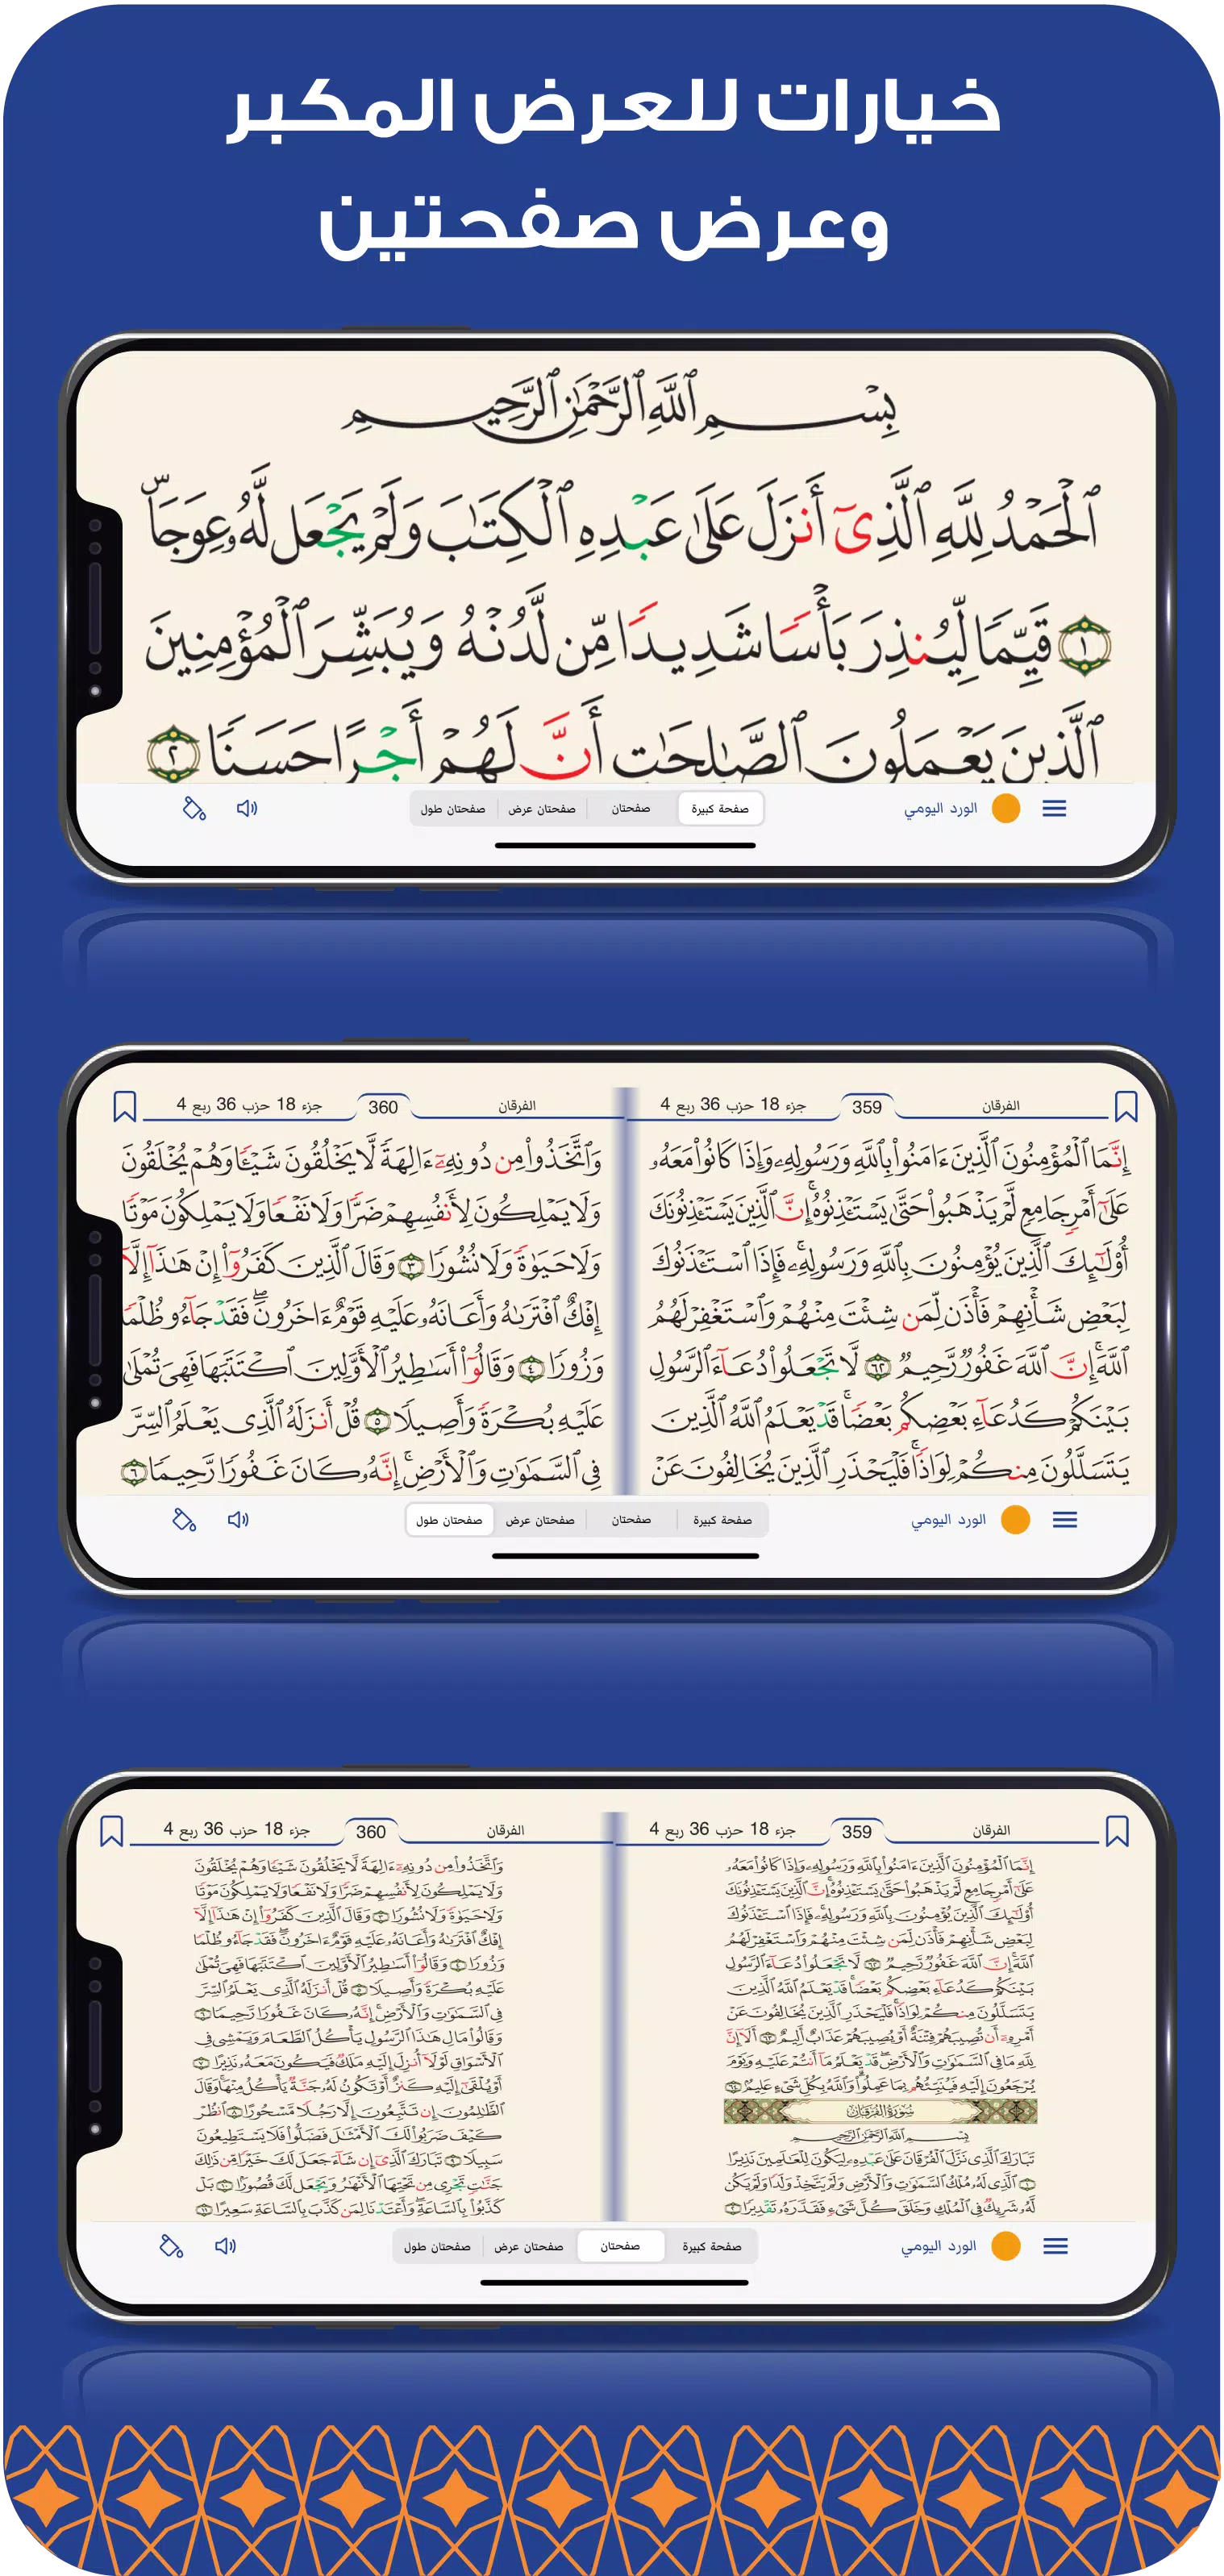 خيارات للعرض المكبر
وعرض صفحتين
بِسْمِ ٱللَّهِ ٱلرَّحْمَٰنِ ٱلرَّحِيمِ
ٱلْحَمْدُ لِلَّهِ ٱلَّذِىٓ أَنزَلَ عَلَىٰ عَبْدِهِ ٱلْكِتَٰبَ وَلَمْ يَجْعَل لَّهُۥ عِوَجَاۜ
١ قَيِّمًا لِّيُنذِرَ بَأْسًا شَدِيدًا مِّن لَّدُنْهُ وَيُبَشِّرَ ٱلْمُؤْمِنِينَ
ٱلَّذِينَ يَعْمَلُونَ ٱلصَّٰلِحَٰتِ أَنَّ لَهُمْ أَجْرًا حَسَنًا ٢
الورد اليومي
صفحة كبيرة صفحتان صفحتان عرض صفحتان طول
الفرقان 359 جزء 18 حزب 36 ربع 4
إِنَّمَا ٱلْمُؤْمِنُونَ ٱلَّذِينَ ءَامَنُوا۟ بِٱللَّهِ وَرَسُولِهِۦ وَإِذَا كَانُوا۟ مَعَهُۥ
عَلَىٰٓ أَمْرٍ جَامِعٍ لَّمْ يَذْهَبُوا۟ حَتَّىٰ يَسْتَـْٔذِنُوهُ ۚ إِنَّ ٱلَّذِينَ يَسْتَـْٔذِنُونَكَ
أُو۟لَٰٓئِكَ ٱلَّذِينَ يُؤْمِنُونَ بِٱللَّهِ وَرَسُولِهِۦ ۚ فَإِذَا ٱسْتَـْٔذَنُوكَ
لِبَعْضِ شَأْنِهِمْ فَأْذَن لِّمَن شِئْتَ مِنْهُمْ وَٱسْتَغْفِرْ لَهُمُ
ٱللَّهَ ۚ إِنَّ ٱللَّهَ غَفُورٌ رَّحِيمٌ ٦٢ لَّا تَجْعَلُوا۟ دُعَآءَ ٱلرَّسُولِ
بَيْنَكُمْ كَدُعَآءِ بَعْضِكُم بَعْضًا ۚ قَدْ يَعْلَمُ ٱللَّهُ ٱلَّذِينَ
يَتَسَلَّلُونَ مِنكُمْ لِوَاذًا ۚ فَلْيَحْذَرِ ٱلَّذِينَ يُخَالِفُونَ عَنْ
الفرقان 360 جزء 18 حزب 36 ربع 4
وَٱتَّخَذُوا۟ مِن دُونِهِۦٓ ءَالِهَةً لَّا يَخْلُقُونَ شَيْـًٔا وَهُمْ يُخْلَقُونَ
وَلَا يَمْلِكُونَ لِأَنفُسِهِمْ ضَرًّا وَلَا نَفْعًا وَلَا يَمْلِكُونَ مَوْتًا
وَلَا حَيَوٰةً وَلَا نُشُورًا ٣ وَقَالَ ٱلَّذِينَ كَفَرُوٓا۟ إِنْ هَٰذَآ إِلَّآ
إِفْكٌ ٱفْتَرَىٰهُ وَأَعَانَهُۥ عَلَيْهِ قَوْمٌ ءَاخَرُونَ ۖ فَقَدْ جَآءُو ظُلْمًا
وَزُورًا ٤ وَقَالُوٓا۟ أَسَٰطِيرُ ٱلْأَوَّلِينَ ٱكْتَتَبَهَا فَهِىَ تُمْلَىٰ
عَلَيْهِ بُكْرَةً وَأَصِيلًا ٥ قُلْ أَنزَلَهُ ٱلَّذِى يَعْلَمُ ٱلسِّرَّ
فِى ٱلسَّمَٰوَٰتِ وَٱلْأَرْضِ ۚ إِنَّهُۥ كَانَ غَفُورًا رَّحِيمًا ٦
الورد اليومي
صفحة كبيرة صفحتان صفحتان عرض صفحتان طول
الفرقان 359 جزء 18 حزب 36 ربع 4
إِنَّمَا ٱلْمُؤْمِنُونَ ٱلَّذِينَ ءَامَنُوا۟ بِٱللَّهِ وَرَسُولِهِۦ وَإِذَا كَانُوا۟ مَعَهُۥ
عَلَىٰٓ أَمْرٍ جَامِعٍ لَّمْ يَذْهَبُوا۟ حَتَّىٰ يَسْتَـْٔذِنُوهُ ۚ إِنَّ ٱلَّذِينَ يَسْتَـْٔذِنُونَكَ
أُو۟لَٰٓئِكَ ٱلَّذِينَ يُؤْمِنُونَ بِٱللَّهِ وَرَسُولِهِۦ ۚ فَإِذَا ٱسْتَـْٔذَنُوكَ
لِبَعْضِ شَأْنِهِمْ فَأْذَن لِّمَن شِئْتَ مِنْهُمْ وَٱسْتَغْفِرْ لَهُمُ
ٱللَّهَ ۚ إِنَّ ٱللَّهَ غَفُورٌ رَّحِيمٌ ٦٢ لَّا تَجْعَلُوا۟ دُعَآءَ ٱلرَّسُولِ
بَيْنَكُمْ كَدُعَآءِ بَعْضِكُم بَعْضًا ۚ قَدْ يَعْلَمُ ٱللَّهُ ٱلَّذِينَ
يَتَسَلَّلُونَ مِنكُمْ لِوَاذًا ۚ فَلْيَحْذَرِ ٱلَّذِينَ يُخَالِفُونَ عَنْ
أَمْرِهِۦٓ أَن تُصِيبَهُمْ فِتْنَةٌ أَوْ يُصِيبَهُمْ عَذَابٌ أَلِيمٌ ٦٣ أَلَآ إِنَّ
لِلَّهِ مَا فِى ٱلسَّمَٰوَٰتِ وَٱلْأَرْضِ ۖ قَدْ يَعْلَمُ مَآ أَنتُمْ عَلَيْهِ وَيَوْمَ
يُرْجَعُونَ إِلَيْهِ فَيُنَبِّئُهُم بِمَا عَمِلُوا۟ ۗ وَٱللَّهُ بِكُلِّ شَىْءٍ عَلِيمٌ ٦٤
سُورَةُ الفُرْقَانِ
بِسْمِ ٱللَّهِ ٱلرَّحْمَٰنِ ٱلرَّحِيمِ
تَبَارَكَ ٱلَّذِى نَزَّلَ ٱلْفُرْقَانَ عَلَىٰ عَبْدِهِۦ لِيَكُونَ لِلْعَٰلَمِينَ نَذِيرًا
١ ٱلَّذِى لَهُۥ مُلْكُ ٱلسَّمَٰوَٰتِ وَٱلْأَرْضِ وَلَمْ يَتَّخِذْ وَلَدًا وَلَمْ يَكُن
لَّهُۥ شَرِيكٌ فِى ٱلْمُلْكِ وَخَلَقَ كُلَّ شَىْءٍ فَقَدَّرَهُۥ تَقْدِيرًا ٢
الفرقان 360 جزء 18 حزب 36 ربع 4
وَٱتَّخَذُوا۟ مِن دُونِهِۦٓ ءَالِهَةً لَّا يَخْلُقُونَ شَيْـًٔا وَهُمْ يُخْلَقُونَ
وَلَا يَمْلِكُونَ لِأَنفُسِهِمْ ضَرًّا وَلَا نَفْعًا وَلَا يَمْلِكُونَ مَوْتًا
وَلَا حَيَوٰةً وَلَا نُشُورًا ٣ وَقَالَ ٱلَّذِينَ كَفَرُوٓا۟ إِنْ هَٰذَآ إِلَّآ
إِفْكٌ ٱفْتَرَىٰهُ وَأَعَانَهُۥ عَلَيْهِ قَوْمٌ ءَاخَرُونَ ۖ فَقَدْ جَآءُو ظُلْمًا
وَزُورًا ٤ وَقَالُوٓا۟ أَسَٰطِيرُ ٱلْأَوَّلِينَ ٱكْتَتَبَهَا فَهِىَ تُمْلَىٰ
عَلَيْهِ بُكْرَةً وَأَصِيلًا ٥ قُلْ أَنزَلَهُ ٱلَّذِى يَعْلَمُ ٱلسِّرَّ
فِى ٱلسَّمَٰوَٰتِ وَٱلْأَرْضِ ۚ إِنَّهُۥ كَانَ غَفُورًا رَّحِيمًا ٦
وَقَالُوا۟ مَالِ هَٰذَا ٱلرَّسُولِ يَأْكُلُ ٱلطَّعَامَ وَيَمْشِى فِى
ٱلْأَسْوَاقِ ۙ لَوْلَآ أُنزِلَ إِلَيْهِ مَلَكٌ فَيَكُونَ مَعَهُۥ نَذِيرًا ٧
أَوْ يُلْقَىٰٓ إِلَيْهِ كَنزٌ أَوْ تَكُونُ لَهُۥ جَنَّةٌ يَأْكُلُ مِنْهَا ۚ وَقَالَ
ٱلظَّٰلِمُونَ إِن تَتَّبِعُونَ إِلَّا رَجُلًا مَّسْحُورًا ٨ ٱنظُرْ
كَيْفَ ضَرَبُوا۟ لَكَ ٱلْأَمْثَٰلَ فَضَلُّوا۟ فَلَا يَسْتَطِيعُونَ
سَبِيلًا ٩ تَبَارَكَ ٱلَّذِىٓ إِن شَآءَ جَعَلَ لَكَ خَيْرًا مِّن ذَٰلِكَ
جَنَّٰتٍ تَجْرِى مِن تَحْتِهَا ٱلْأَنْهَٰرُ وَيَجْعَل لَّكَ قُصُورًا ١٠ بَلْ
كَذَّبُوا۟ بِٱلسَّاعَةِ ۖ وَأَعْتَدْنَا لِمَن كَذَّبَ بِٱلسَّاعَةِ سَعِيرًا ١١
الورد اليومي
صفحة كبيرة صفحتان صفحتان عرض صفحتان طول